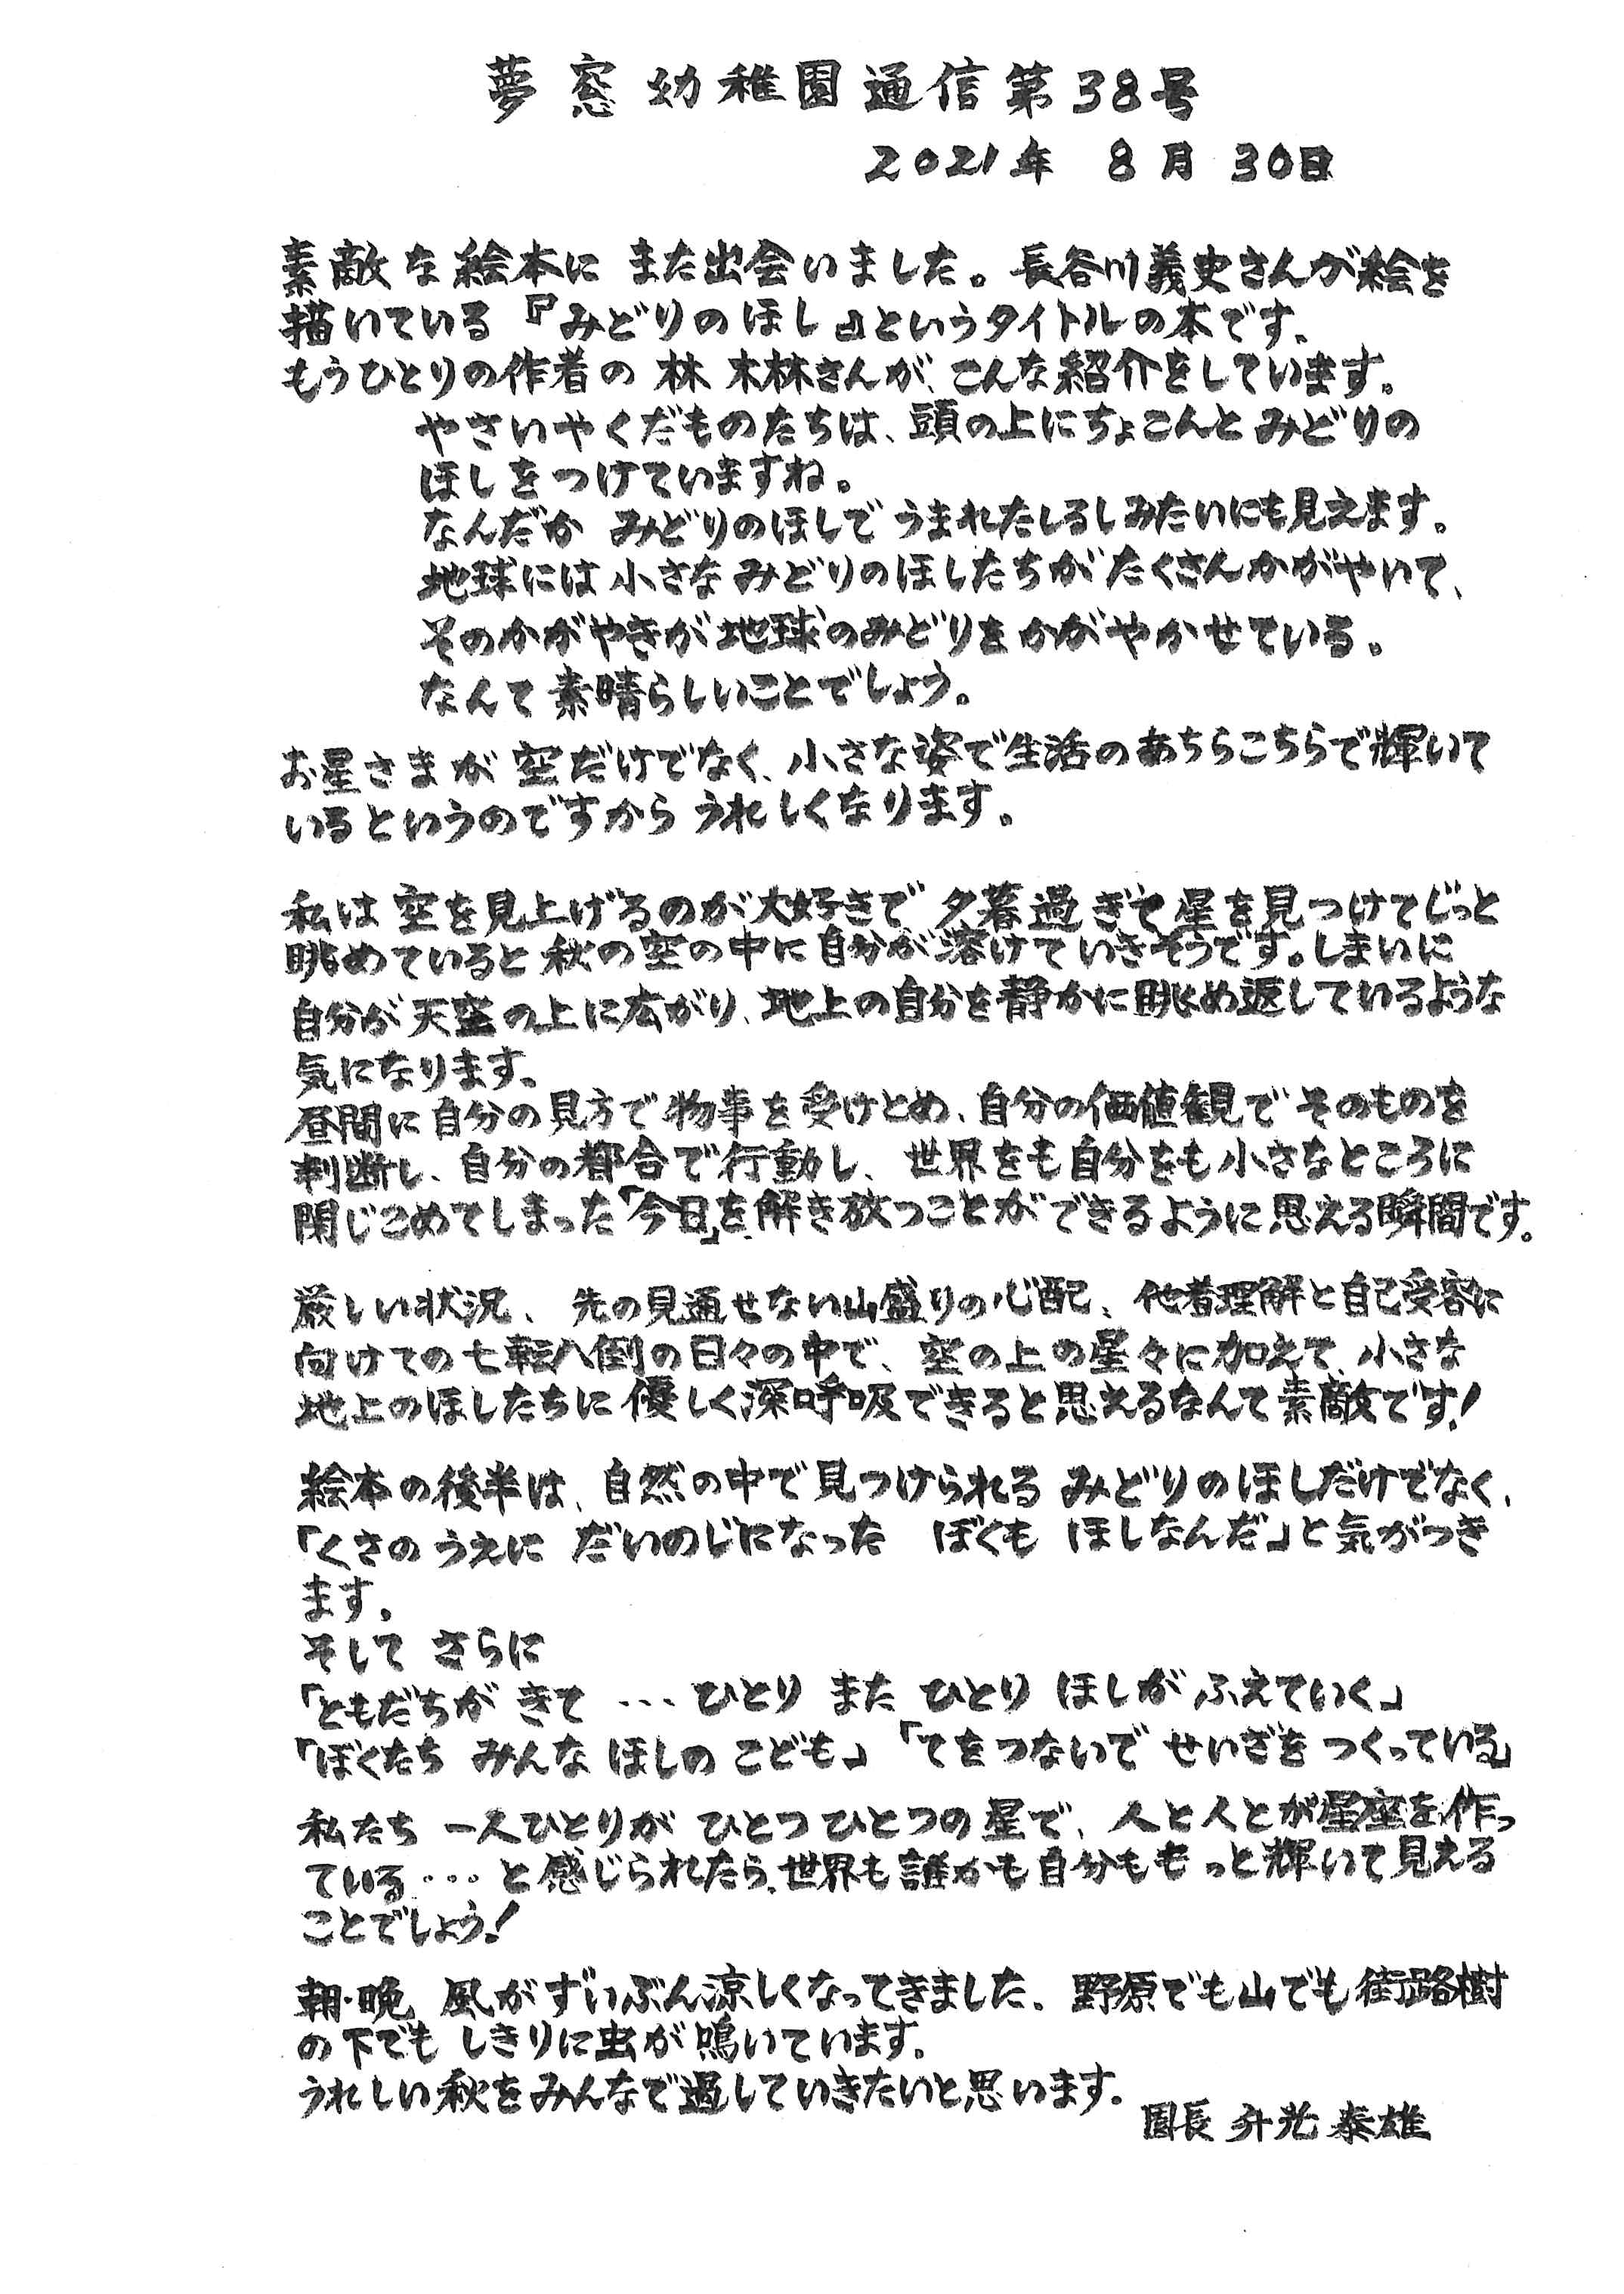 夢窓幼稚園通信第38号
2021年 8月 30日
素敵な絵本に また出会いました。長谷川義史さんが絵を
描いている『みどりのほし』というタイトルの本です。
もうひとりの作者の 林 木林さんが、こんな紹介をしています。
やさいやくだものたちは、頭の上にちょこんと みどりの
ほしをつけていますね。
なんだか みどりのほしで うまれたしるしみたいにも見えます。
地球には 小さな みどりのほしたちが たくさんかがやいて、
そのかがやきが 地球のみどりを かがやかせている。
なんて 素晴らしいことでしょう。
お星さまが 空だけでなく、小さな姿で生活のあちらこちらで輝いて
いるというのですから うれしくなります。
私は 空を見上げるのが大好きで 夕暮過ぎて 星を見つけてじっと
眺めていると秋の空の中に自分が溶けていきそうです。しまいに
自分が 天空の上に広がり、地上の自分を静かに眺め返しているような
気になります。
昼間に自分の見方で物事を受けとめ、自分の価値観で そのものを
判断し、自分の都合で行動し、世界をも自分をも小さなところに
閉じこめてしまった「今日」を解き放つことができるように思える瞬間です。
厳しい状況、先の見通せない山盛りの心配、他者理解と自己受容に
向けての七転八倒の日々の中で、空の上の星々に加えて、小さな
地上のほしたちに優しく深呼吸できると思えるなんて素敵です!
絵本の後半は、自然の中で見つけられる みどりのほしだけでなく、
「くさのうえに だいのじになった ぼくも ほしなんだ」と気がつき
ます。
そして さらに
「ともだちが きて …ひとり また ひとり ほしが ふえていく」
「ぼくたち みんな ほしの こども」「てをつないで せいざを つくっている」
私たち 一人ひとりが ひとつひとつの星で、人と人とが星座を作っ
ている…と感じられたら、世界も誰かも自分ももっと輝いて見える
ことでしょう!
朝・晩 風がずいぶん涼しくなってきました。野原でも山でも街路樹
の下でも しきりに虫が鳴いています。
うれしい秋をみんなで過していきたいと思います。
園長 升光 泰雄